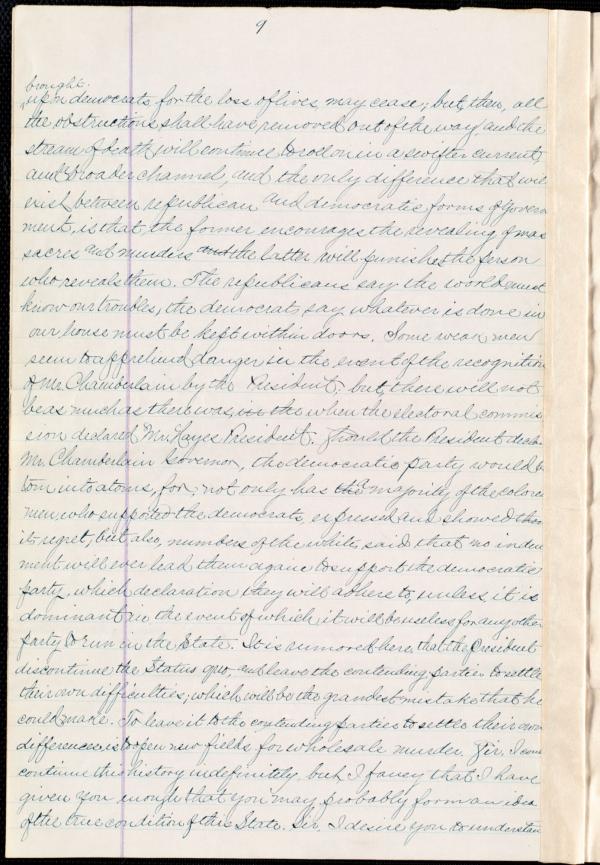 9
brought
upon democrats for the loss of lives may cease; but, then, all
the obstructions shall have removed out of the way and the
stream of death will continue to roll on in a swifter current,
and broader channel, and the only difference that will
exist between republican and democratic forms of govern
ment, is that the former encourages the revealing of mas
sacres and murders and the latter will punish the person
who reveals them. The republicans say the world must
know our troubles, the democrats, say whatever is done in
our house must be kept within doors. Some weak men
seem to apprehend danger in the event of the recognition
of Mr. Chamberlain by the President; but, there will not
be as much as there was, in the when the electoral commis
sion declared Mr. Hayes President. Should the President declare
Mr. Chamberlain Governor, the democratic party would be
torn into atoms, for, not only has the a majority of the colored
men, who supported the democrats, expressed and showed their
its regret, but also, numbers of the whites, said, that no induce
ment will ever lead them again to support the democratic
party, which declaration they will adhere to, unless it is
dominant in the event of which it will be useless for any other
party to run in the State. It is rumored here, that the President
discontinue the Status quo, and leave the contending parties to settle
their own difficulties, which will be the grandest mistake that he
could make. To leave it to the contending parties to settle their own
differences is to open new fields for wholesale murder. Sir, I could
continue this history indefinitely, but I fancy that I have
given you enough that you may probably form an idea
of the true condition of this State. Sir, I desire you to understan